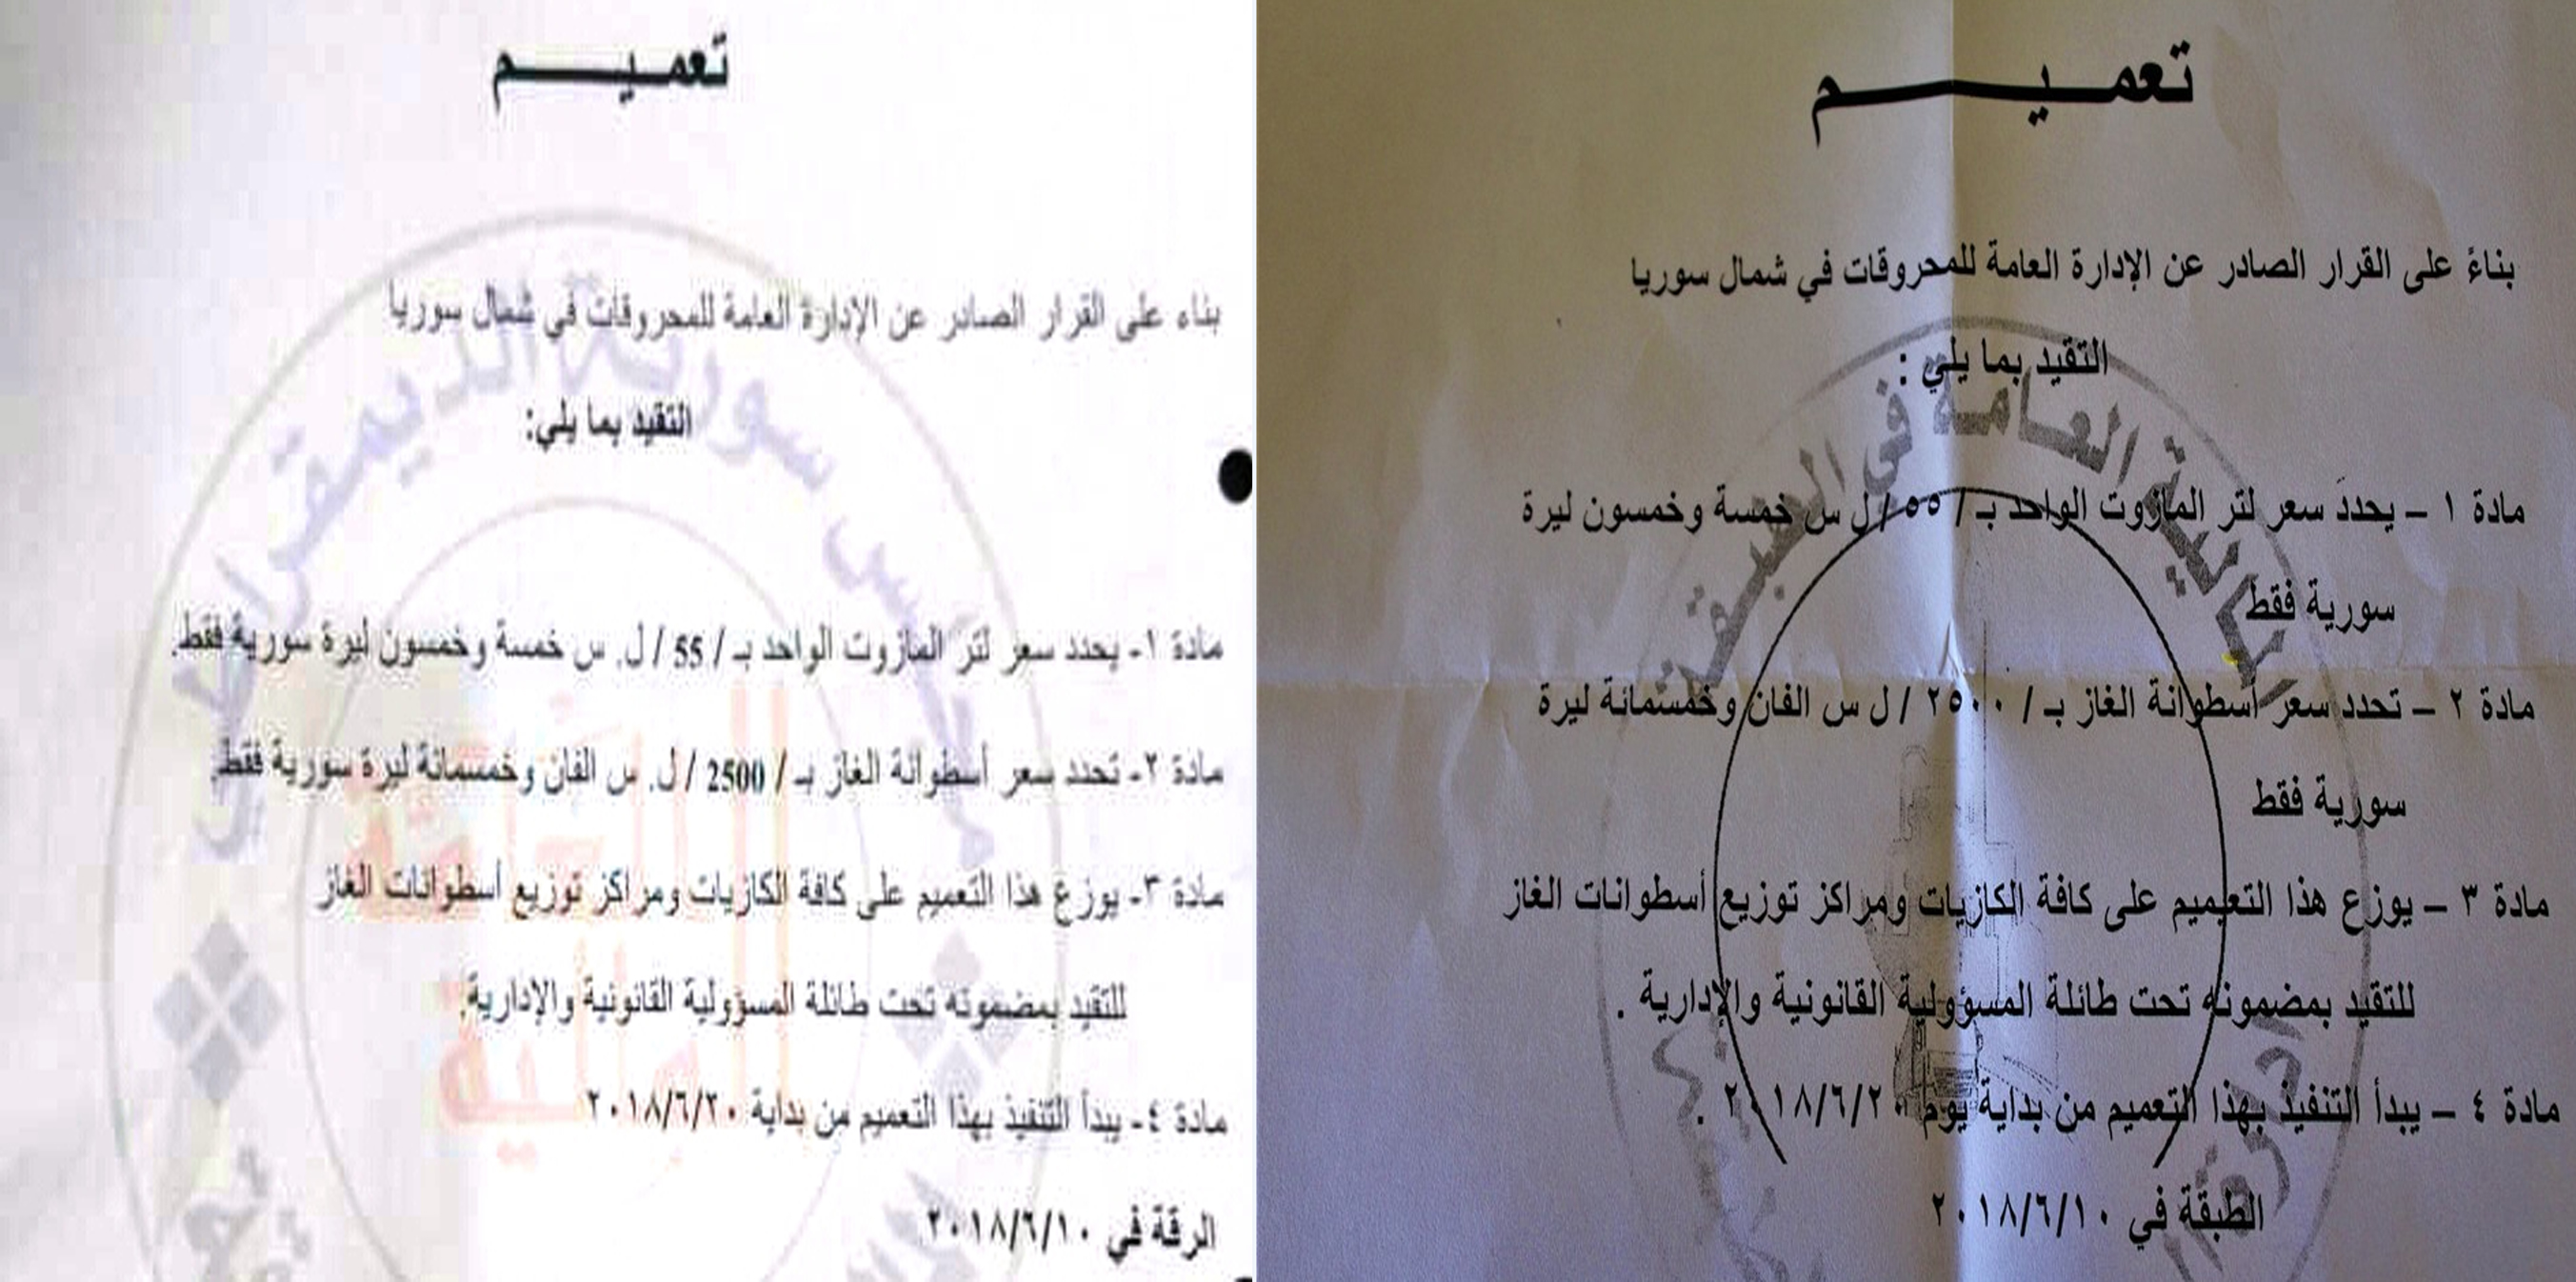 تعميم
بناء على القرار الصادر عن الإدارة العامة للمحروقات في شمال سوريا
التقيد بما يلي:
مادة ١- يحدد سعر لتر المازوت الواحد بـ / 55 / ل. س خمسة وخمسون ليرة سورية فقط.
مادة ٢- تحدد سعر أسطوانة الغاز بـ / 2500 / ل. س الفان وخمسمائة ليرة سورية فقط.
مادة ٣- يوزع هذا التعميم على كافة الكازيات ومراكز توزيع أسطوانات الغاز
للتقيد بمضمونه تحت طائلة المسؤولية القانونية والإدارية.
مادة ٤- يبدأ التنفيذ بهذا التعميم من بداية ٢٠١٨/٦/٢٠
الرقة في ٢٠١٨/٦/١٠
سورية الديمقراطي
المالية
تعميم
بناءً على القرار الصادر عن الإدارة العامة للمحروقات في شمال سوريا
التقيد بما يلي :
مادة ١ – يحدد سعر لتر المازوت الواحد بـ / ٥٥ / ل س خمسة وخمسون ليرة
سورية فقط
مادة ٢ – تحدد سعر أسطوانة الغاز بـ / ٢٥٠٠ / ل س الفان وخمسمائة ليرة
سورية فقط
مادة ٣ – يوزع هذا التعميم على كافة الكازيات ومراكز توزيع أسطوانات الغاز
للتقيد بمضمونه تحت طائلة المسؤولية القانونية والإدارية .
مادة ٤ – يبدأ التنفيذ بهذا التعميم من بداية يوم ٢٠١٨/٦/٢٠ .
الطبقة في ٢٠١٨/٦/١٠
المالية العامة في الطبقة